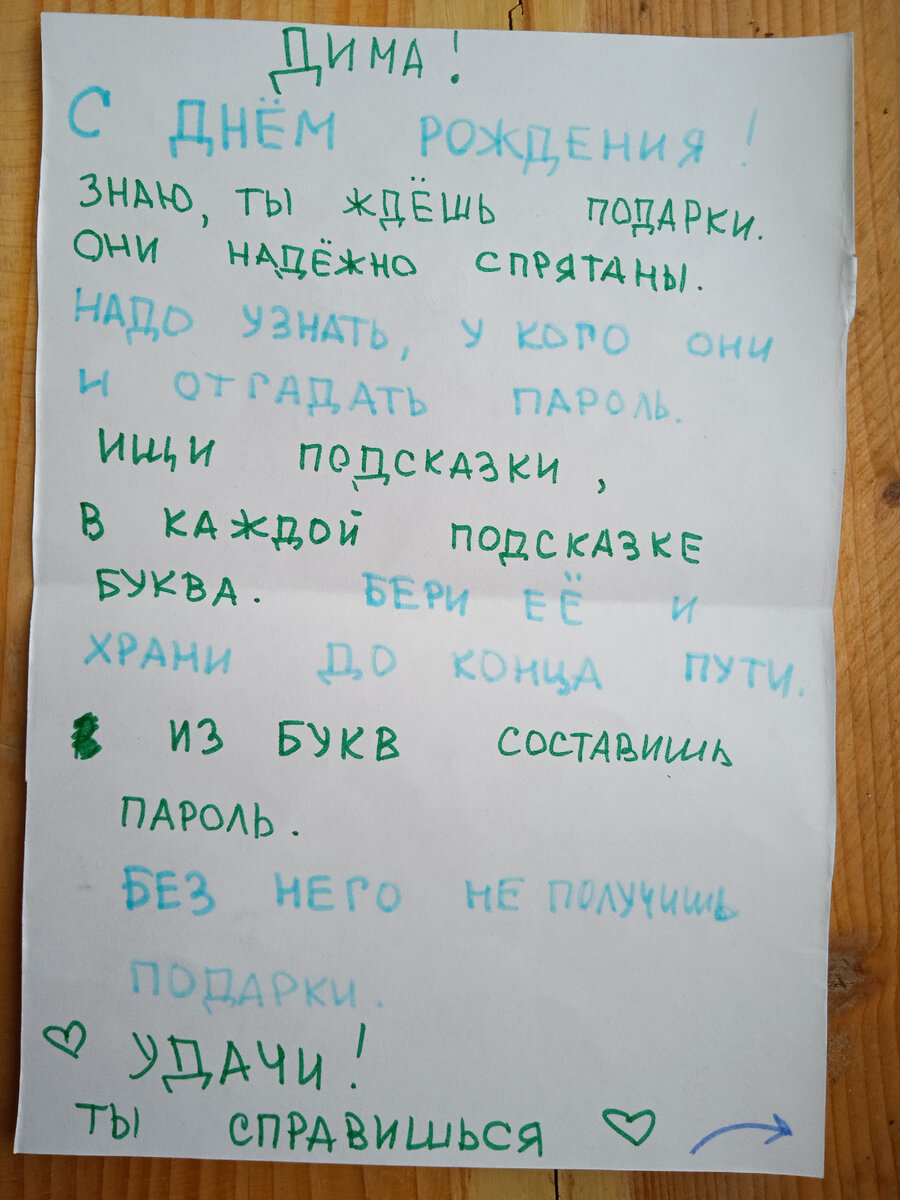 ДИМА!
С ДНЁМ РОЖДЕНИЯ!
ЗНАЮ, ТЫ ЖДЁШЬ ПОДАРКИ.
ОНИ НАДЁЖНО СПРЯТАНЫ.
НАДО УЗНАТЬ, У КОГО ОНИ
И ОТГАДАТЬ ПАРОЛЬ.
ИЩИ ПОДСКАЗКИ,
В КАЖДОЙ ПОДСКАЗКЕ
БУКВА. БЕРИ ЕЁ И
ХРАНИ ДО КОНЦА ПУТИ.
ИЗ БУКВ СОСТАВИШЬ
ПАРОЛЬ.
БЕЗ НЕГО НЕ ПОЛУЧИШЬ
ПОДАРКИ.
УДАЧИ!
ТЫ СПРАВИШЬСЯ